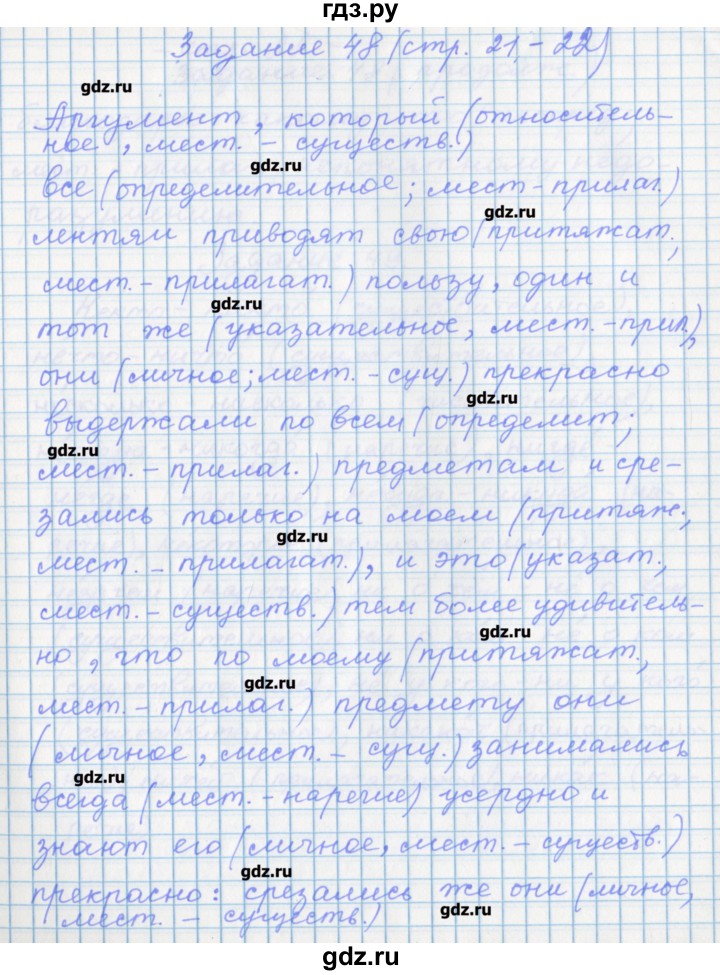 гдз.ру
Задание 48 (стр. 21 - 22)
gdz.ru
Аргумент, который (относитель-
ное, мест. - существ.)
gdz.ru
все (определительное; мест - прилаг.)
gdz.ru
лентяи приводят свою (притяжат.,
мест. - прилагат.) пользу, один и
gdz.ru
тот же (указательное, мест. - прил.),
они (личное; мест. - сущ.) прекрасно
gdz.ru
выдержали по всем (определит;
gdz.ru
мест. - прилаг.) предметам и сре-
зались только на моем (притяж.,
gdz.ru
мест. - прилагат.), и это (указат.,
мест. - существ.) тем более удивитель-
gdz.ru
но, что по моему (притяжат.,
gdz.ru
мест. - прилаг.) предмету они
(личное, мест. - сущ.) занимались
gdz.ru
всегда (мест. - наречие) усердно и
знают его (личное, мест. - существ.)
gdz.ru
прекрасно: срезались же они (личное,
gdz.ru
мест. - существ.)
gdz.ru